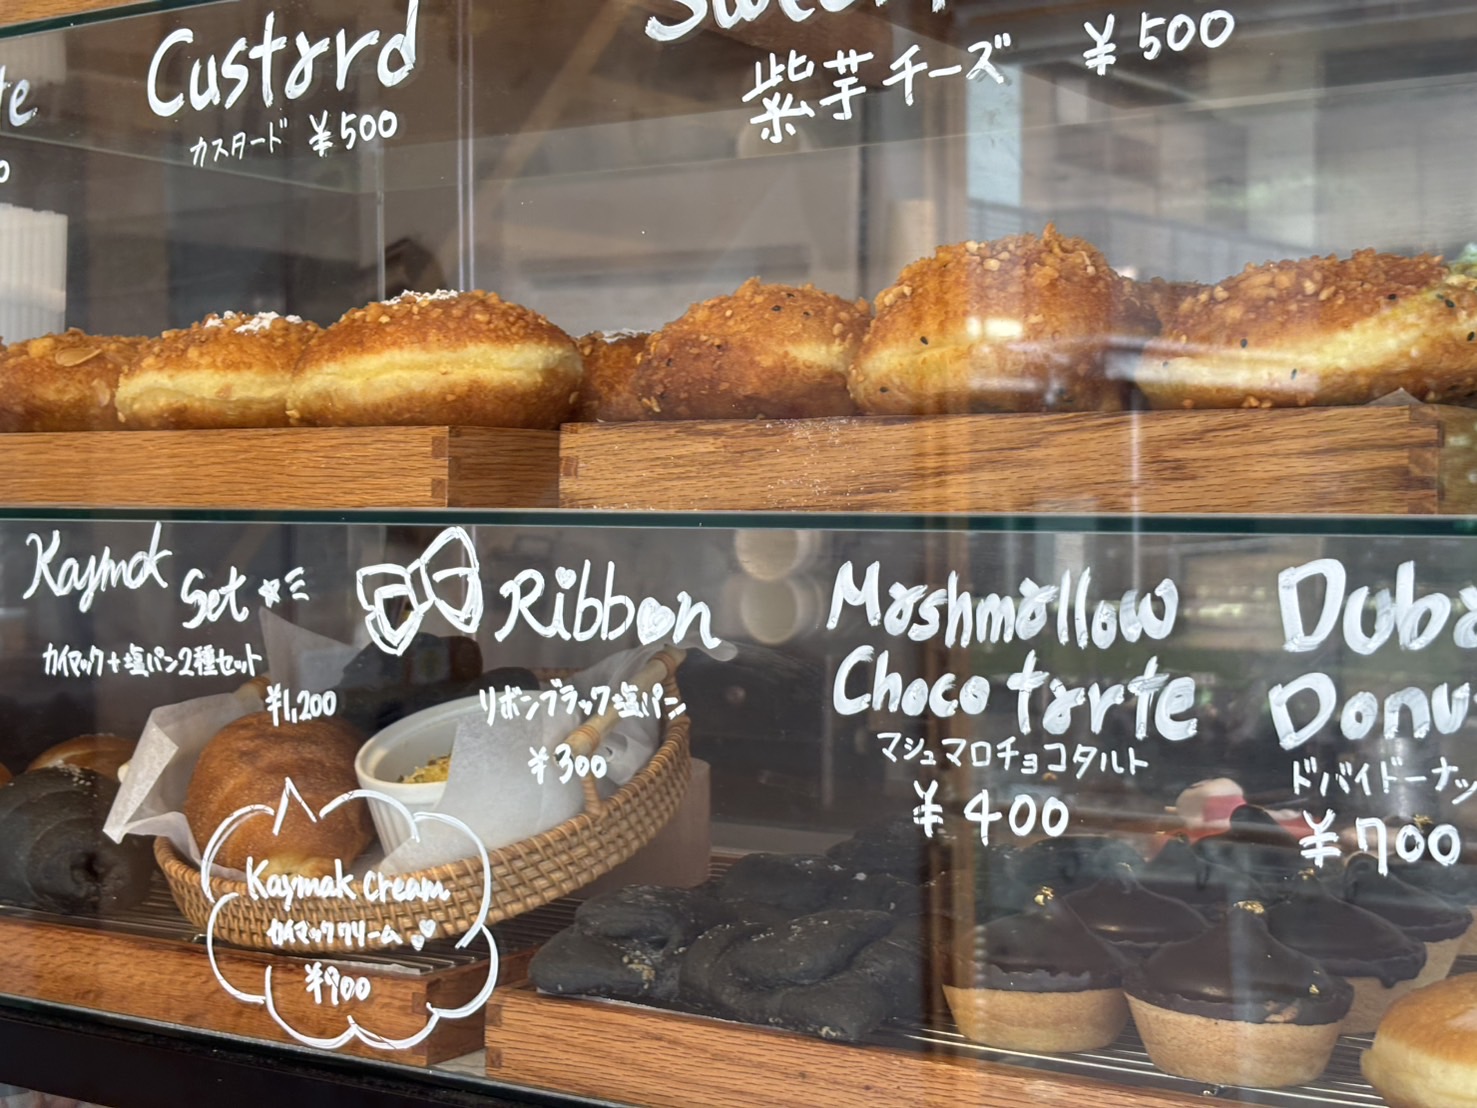 Custard
カスタード ¥500
紫芋チーズ ¥500
Kaymak Set
カイマック+塩パン2種セット
¥1,200
Ribbon
リボンブラック塩パン
¥300
Kaymak Cream
カイマッククリーム
¥900
Marshmallow
Choco tarte
マシュマロチョコタルト
¥400
Duba
Donu
ドバイドーナッ
¥700